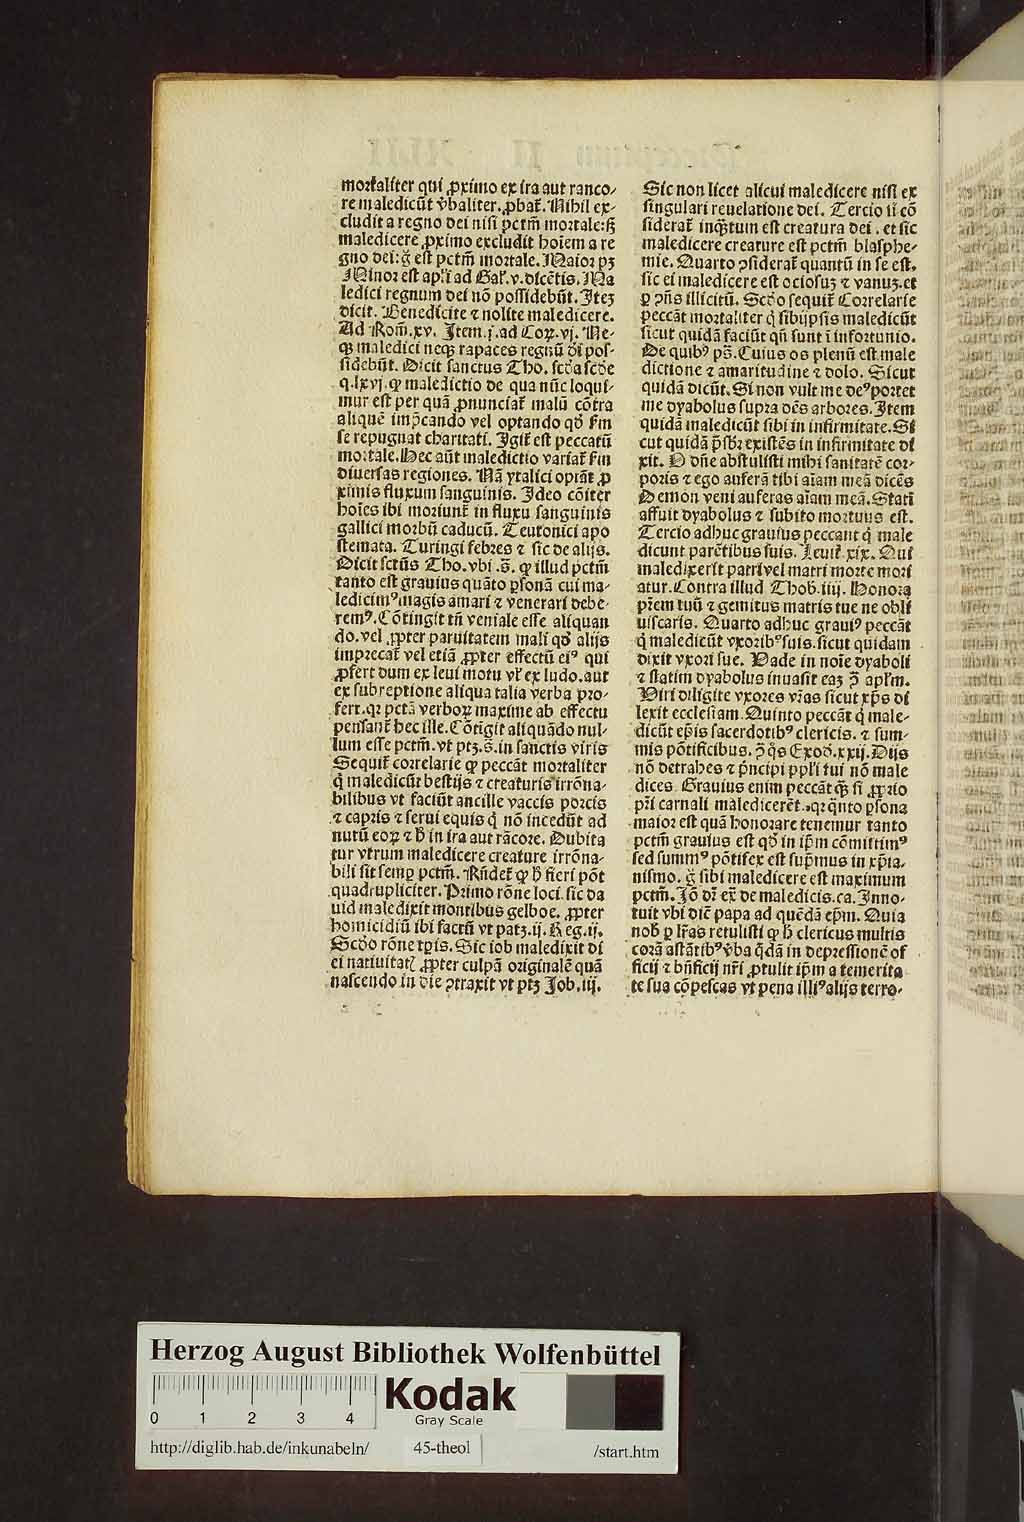 mortaliter qui ꝓximo ex ira aut ranco⸗
re maledicūt v̄baliter. ꝓbaꝉ. Nihil ex⸗
cludit a regno dei nisi pctm̄ mortale: sꝫ
maledicere ꝓximo excludit hoīem a re
gno dei: g̊ est pctm̄ mortale. Maior pꝫ
Minor est apl̄i ad Gaꝉ. v. dicētis. Ma
ledici regnum dei nō possidebūt. Iteꝫ
dicit. Benedicite ⁊ nolite maledicere.
Ad Rom̄. xv. Item. j. ad Coꝝ. vj. Ne⸗
qꝫ maledici neqꝫ rapaces regnū dī pos⸗
sidebūt. Dicit sanctus Tho. scd̄a scd̄e
q. lxvj. ꝙ maledictio de qua nūc loqui⸗
mur est per quā ꝓnunciaꝉ malū cōtra
aliquē imp̄cando vel optando qd̓ ẜm
se repugnat charitati. Igiꝉ est peccatū
mortale. Hec aūt maledictio variaꝉ ẜm
diuersas regiones. Nā ytalici optāt ꝓ
ximis fluxum sanguinis. Ideo cōiter
hoīes ibi moriunꝉ in fluxu sanguinis
gallici morbū caducū. Teutonici apo
stemata. Turingi febres ⁊ sic de alijs.
Dicit sctūs Tho. vbi .s̄. ꝙ illud pctm̄
tanto est grauius quāto ꝑsonā cui ma⸗
ledicimꝰ magis amari ⁊ venerari debe⸗
remꝰ. Cōtingit tn̄ veniale esse aliquan
do. vel ꝓpter paruitatem mali qd̓ alijs
imprecaꝉ vel etiā ꝓpter effectū eiꝰ qui
ꝓfert dum ex leui motu vl̓ ex ludo. aut
ex subreptione aliqua talia verba pro⸗
fert. qꝛ pctā verboꝝ maxime ab effectu
pensanꝉ hec ille. Cōtīgit aliquādo nul⸗
lum esse pctm̄. vt ptꝫ .s̄. in sanctis viris
Sequiꝉ correlarie ꝙ peccāt mortaliter
q̇ maledicūt bestijs ⁊ creaturis irrōna⸗
bilibus vt faciūt ancille vaccis porcis
⁊ capris ⁊ serui equis q̇ nō incedūt ad
nutū eoꝝ ⁊ h̄ in ira aut rācore. Dubita
tur vtrum maledicere creature irrōna⸗
bili sit semꝑ pctm̄. Rn̄deꝉ ꝙ h̄ fieri pōt
quadrupliciter. Primo rōne loci. sic da
uid maledixit montibus gelboe. ꝓpter
homicidiū ibi factū vt patꝫ. ij. Reg. ij.
Scd̓o rōne tꝑis. Sic iob maledixit di
ei natiuitatꝭ ꝓpter culpā originalē quā
nascendo in die ꝯtraxit vt ptꝫ Job. iij.
Sic non licet alicui maledicere nisi ex
singulari reuelatione dei. Tercio si cō
sideraꝉ inqꝫtum est creatura dei. et sic
maledicere creature est pctm̄ blasphe⸗
mie. Quarto ꝯsideraꝉ quantū in se est.
sic ei maledicere est ociosuꝫ ⁊ vanuꝫ. et
ꝑ ꝯn̄s illicitū. Scd̓o sequiꝉ Correlarie
peccāt mortaliter q̇ sibijpsis maledicūt
sicut quidā faciūt qn̄ sunt ī infortunio.
De quibꝰ pš. Cuius os plenū est male
dictione ⁊ amaritudine ⁊ dolo. Sicut
quidā dicūt. Si non vult me deꝰ portet
me dyabolus supra oēs arbores. Item
quidā maledicūt sibi in infirmitate. Si
cut quidā p̄sbr̄ existēs in infirmitate di
xit. O dn̄e abstulisti mihi sanitatē cor⸗
poris ⁊ ego auferā tibi aīam meā dicēs
Demon veni auferas aīam meā. Statī
affuit dyabolus ⁊ subito mortuus est.
Tercio adhuc grauius peccant q̇ male
dicunt parētibus suis. Leuiꝉ. xix. Qui
maledixerit patri vel matri morte mori
atur. Contra illud Thob. iiij. Honora
pr̄em tuū ⁊ gemitus matris tue ne obli
uiscaris. Quarto adhuc grauiꝰ peccāt
q̇ maledicūt vxoribꝰ suis. sicut quidam
dixit vxori sue. Vade in noīe dyaboli
⁊ statim dyabolus inuasit eaꝫ ꝯ̄ apl̄m.
Viri diligite vxores vr̄as sicut xp̄s di
lexit ecclesiam. Quinto peccāt q̇ male⸗
dicūt ep̄is sacerdotibꝰ clericis. ⁊ sum⸗
mis pōtificibus. ꝯ̄ q̊s Exod. xxij. Dijs
nō detrahes ⁊ p̄ncipi pplī tui nō male
dices. Grauius enim peccāt qꝫ si ꝓprio
pr̄i carnali maledicerēt. qꝛ q̄nto ꝑsona
maior est quā honorare tenemur tanto
pctm̄ grauius est qd̓ in ip̄m cōmittimꝰ
sed summꝰ pōtifex est sup̄mus in xp̄ia⸗
nismo. g̊ sibi maledicere est maximum
pctm̄. Jō dr̄ ex̄ de maledicis. ca. Inno⸗
tuit vbi dic̄ papa ad quēdā ep̄m. Quia
nob̄ ꝑ lr̄as retulisti ꝙ h̄ clericus multis
corā astātibꝰ v̄ba q̄dā in depressionē of
ficij ⁊ bn̄ficij nr̄i ꝓtulit ip̄m a temerita
te sua cōpescas vt pena illiꝰ alijs terro⸗
Herzog August Bibliothek Wolfenbüttel
0 1 2 3 4
Kodak
Gray Scale
http://diglib.hab.de/inkunabeln/ 45-theol /start.htm